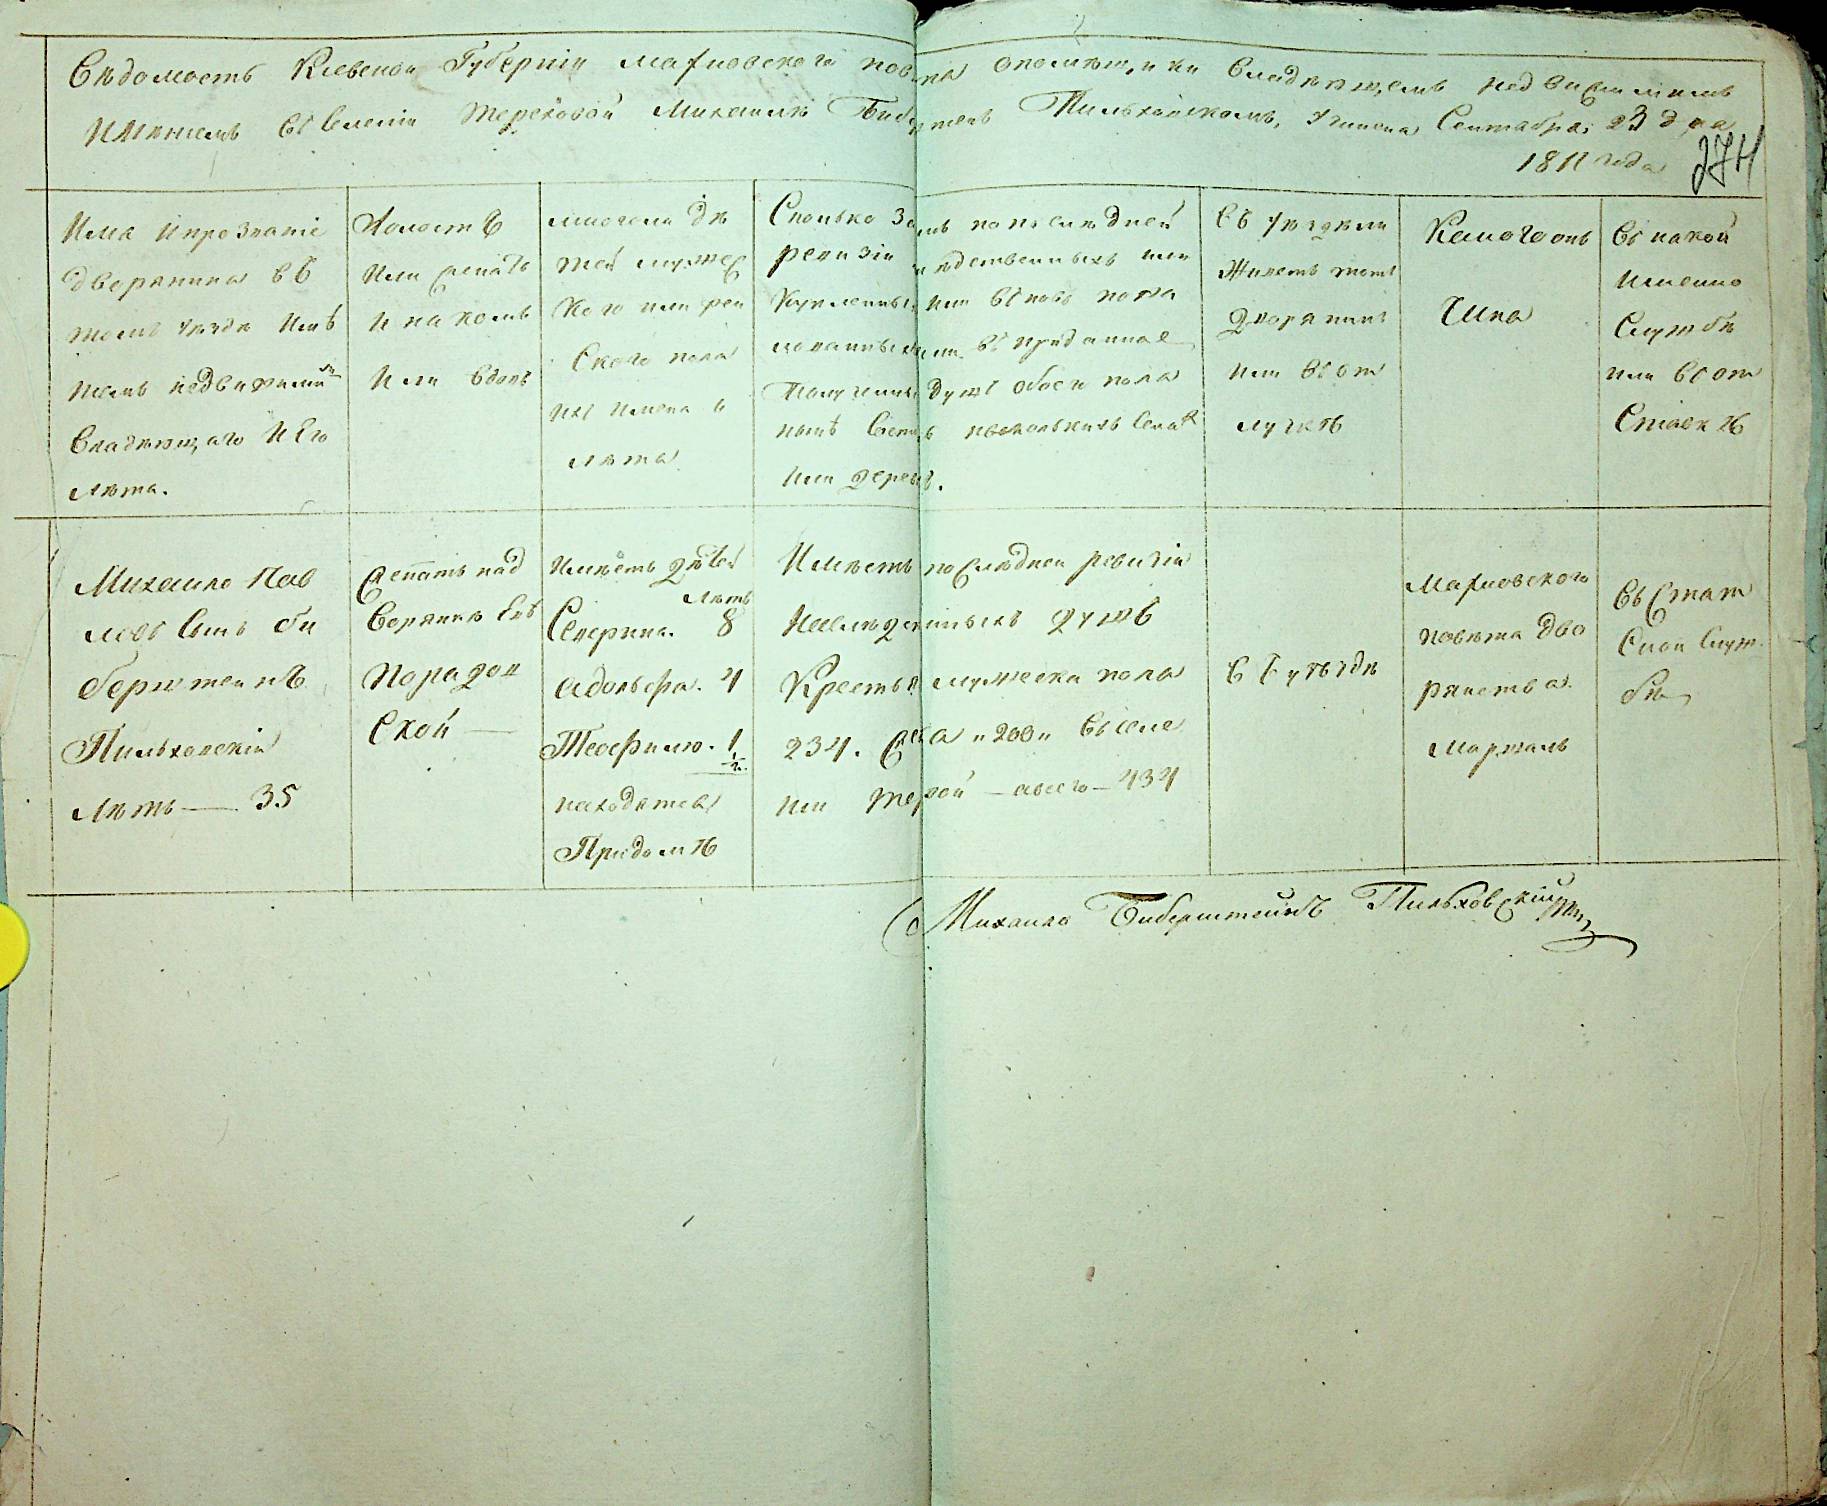 Вѣдомость Киевской Губерніи Махновского повѣта опомѣщикѣ Владѣющемъ недвижимымъ
Имѣніемъ въ Селеніи Терехової Михаилѣ Биберштеинѣ Пильховскомъ, Сентября 23 дня
1811 года
274
Имя ипрозваніе
дворянина въ
томъ уѣздѣ Имѣ
ніемъ недвижимымъ
Владѣющаго И Его
лѣта.
Холостъ
Или женатъ
И на комъ
Или вдовъ
многоли дѣ
тей мужес
кого или жен
ского пола
ихъ имена и
лѣта
Сколько за нимъ попослѣдней
ревизіи наслѣдственныхъ или
Купленныхъ или вновь пожа
лованныхъ или въ приданное
Полученныхъ душъ обоего пола
нынѣ Естъ въ нѣсколькихъ Селахъ
Или дерев.
Въ уѣздѣли
Живетъ тотъ
Дворянинъ
Или въ от
лучкѣ
Какого онъ
Чина
Въ какой
именно
Службѣ
или въ от
ставкѣ
Михаило Пав
ловъ Сынъ Би
берштеинъ
Пильховскій
Лѣтъ — 35
Женатъ над
ворянкѣ Евѣ
Имѣетъ дѣтей
Лѣтъ
Северина. 8
Адольфа. 4
Теофилю. 1 1/2.
находятся
Придомѣ
Имѣетъ попослѣдней ревизіи
Наслѣдственныхъ душъ
Крестьянъ мужеска пола
234. женска „200„ въ Селе
ніи Терехової — авсего — 434
Въ уѣздѣ
Махновского
повѣта дво
рянства
Маршалъ
Въ Стат
Ской Служ.
бѣ
Михаило Биберштейнъ Пильховскій